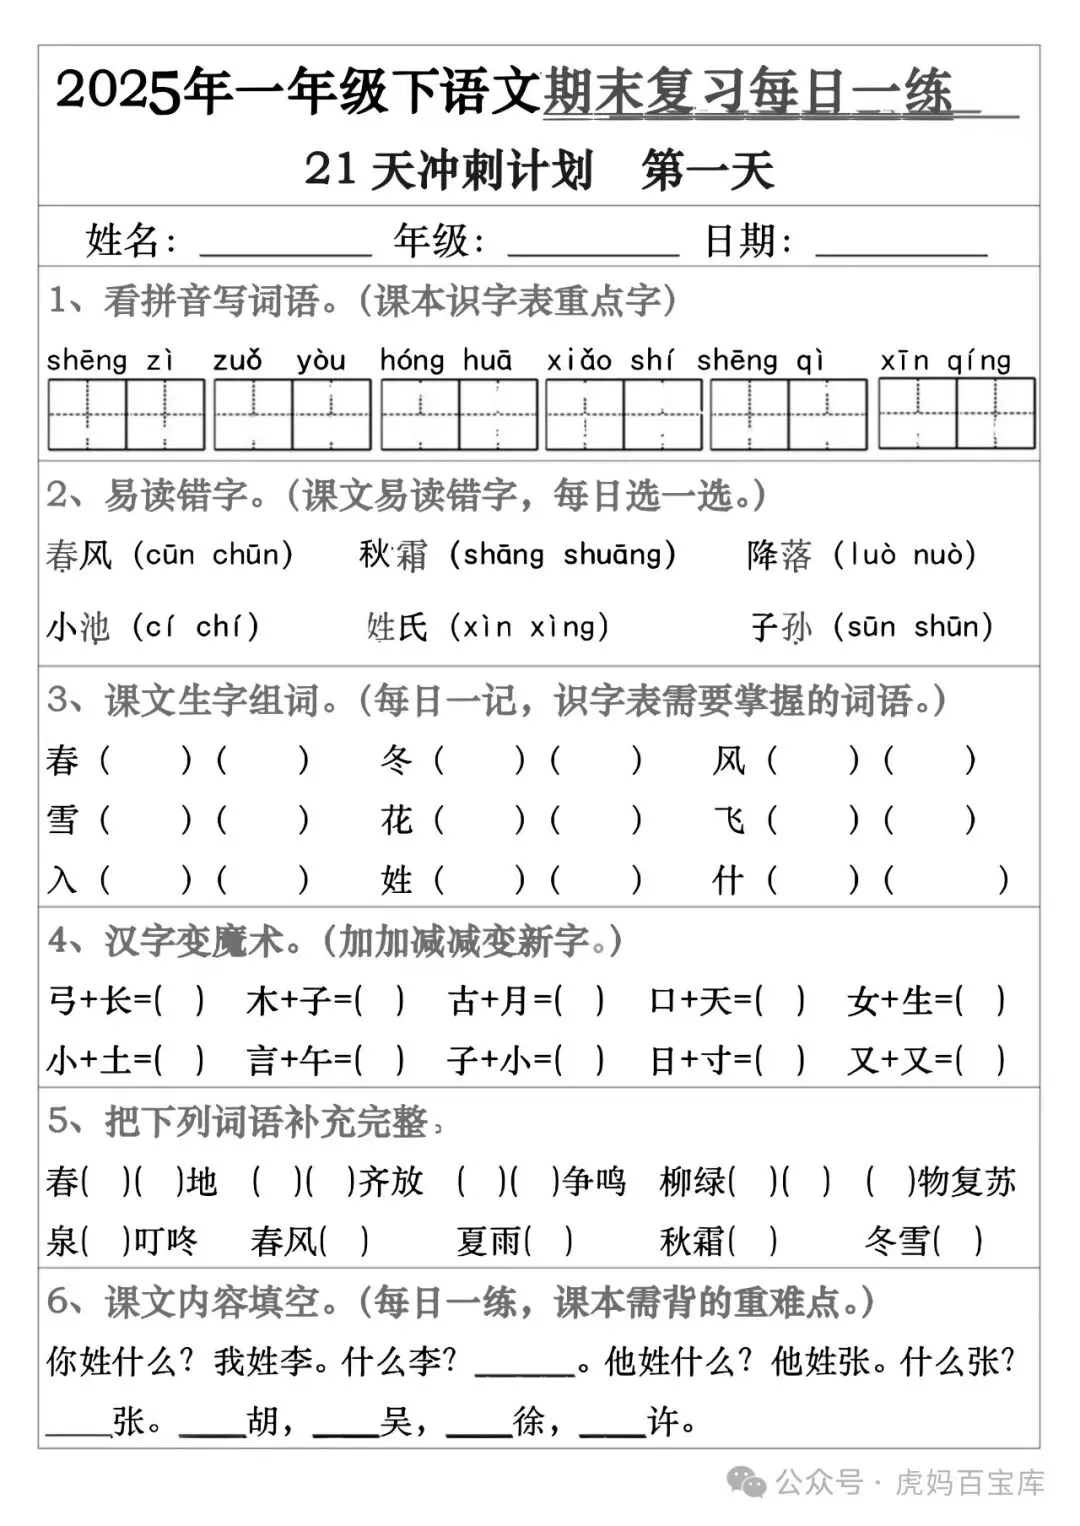 2025年一年级下语文期末复习每日一练
21天冲刺计划 第一天
姓名：________ 年级：________ 日期：________
1、看拼音写词语。(课本识字表重点字)
shēng zì zuǒ yòu hóng huā xiǎo shí shēng qì xīn qíng
2、易读错字。(课文易读错字，每日选一选。)
春风 (cūn chūn) 秋霜 (shāng shuāng) 降落 (luò nuò)
小池 (cí chí) 姓氏 (xìn xìng) 子孙 (sūn shūn)
3、课文生字组词。(每日一记，识字表需要掌握的词语。)
春 ( ) ( ) 冬 ( ) ( ) 风 ( ) ( )
雪 ( ) ( ) 花 ( ) ( ) 飞 ( ) ( )
入 ( ) ( ) 姓 ( ) ( ) 什 ( ) ( )
4、汉字变魔术。(加加减减变新字。)
弓+长=( ) 木+子=( ) 古+月=( ) 口+天=( ) 女+生=( )
小+土=( ) 言+午=( ) 子+小=( ) 日+寸=( ) 又+又=( )
5、把下列词语补充完整。
春( )( )地 ( )( )齐放 ( )( )争鸣 柳绿( )( ) ( )物复苏
泉( )叮咚 春风( ) 夏雨( ) 秋霜( ) 冬雪( )
6、课文内容填空。(每日一练，课本需背的重难点。)
你姓什么？我姓李。什么李？______。他姓什么？他姓张。什么张？
____张。____胡，____吴，____徐，____许。
公众号·虎妈百宝库